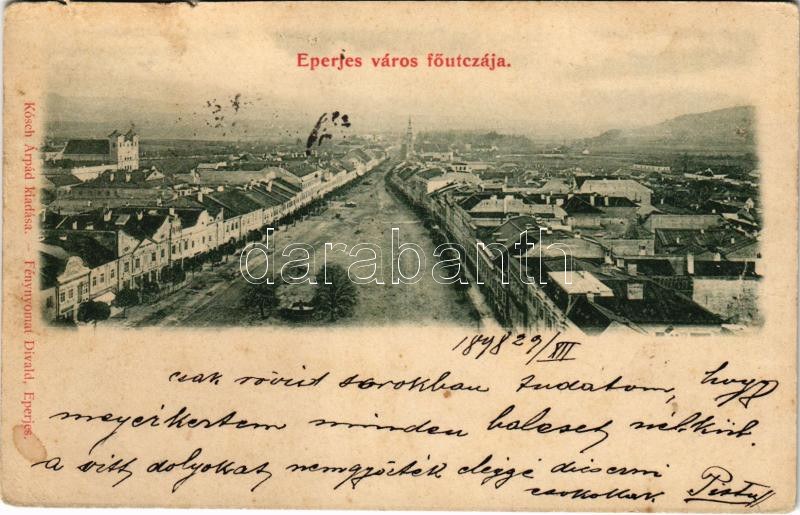 Eperjes város főutczája.
Kósch Árpád kiadása. — Fénynyomat Divald, Eperjes.
darabanth
1898 29/XII
csak rövid sorokban tudatom, hogy
megérkertem minden baleset nélkül.
a vitt dolgokat nem győzték eléggé dicsérni
csokollak Pista